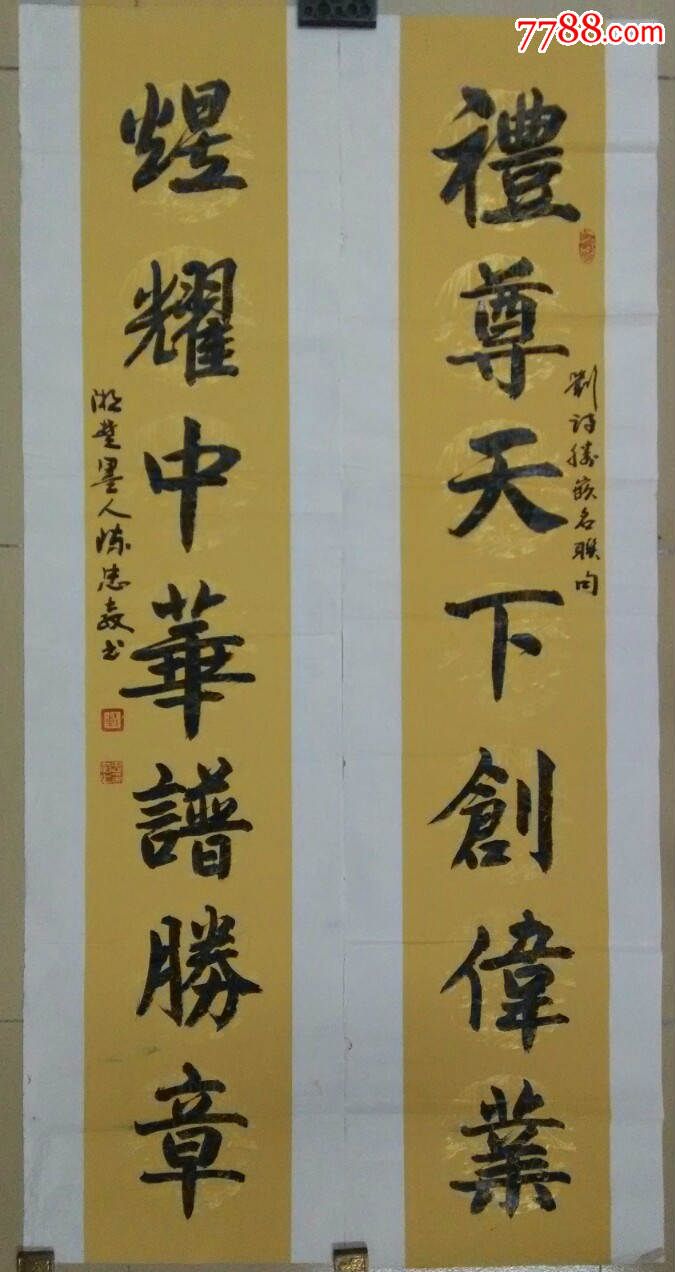 7788.com
禮尊天下創偉業
劉 勝嵌名聯句
煜耀中華譜勝章
湘楚墨人陳忠 書